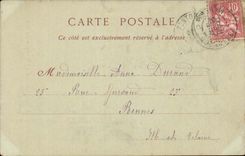 CARTE POSTALE
Ce côté est exclusivement réservé à l'adresse
10
Mademoiselle Anne Durand
25 Rue 25
Rennes
Ille et Vilaine